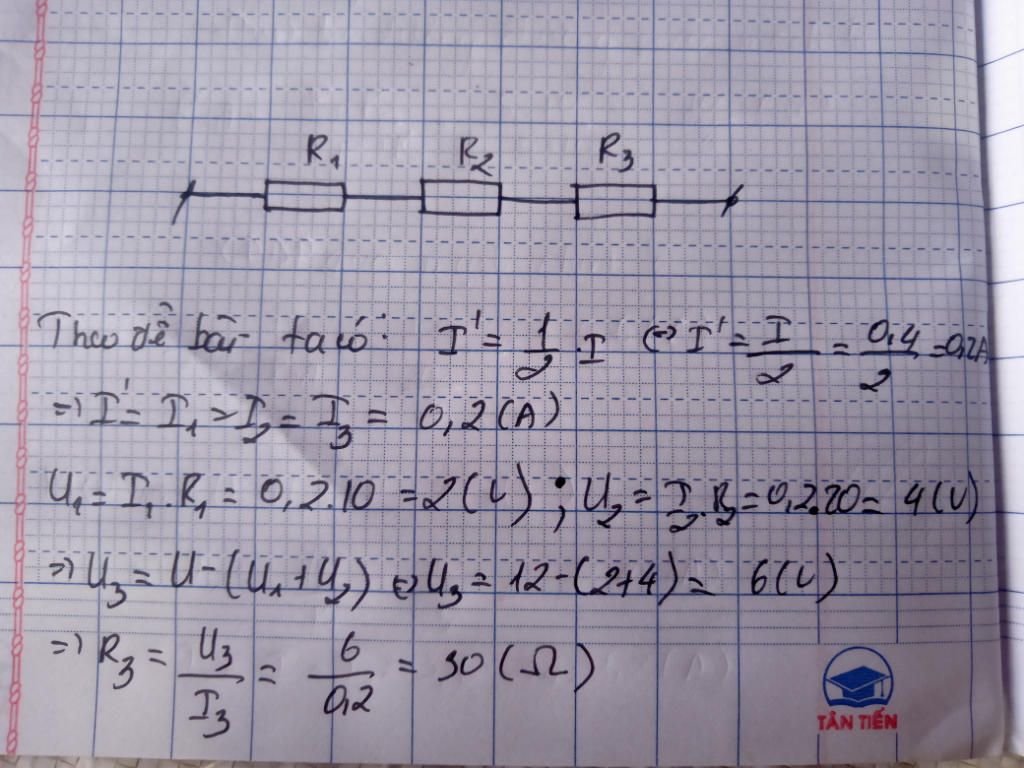 R₁ R₂ R₃
Theo đề bài ta có: I' = 1/2 I ⇔ I' = I/2 = 0,4/2 = 0,2A
⇒ I' = I₁ = I₂ = I₃ = 0,2 (A)
U₁ = I₁ . R₁ = 0,2.10 = 2 (V) ; U₂ = I₂.R₂ = 0,2.20 = 4 (V)
⇒ U₃ = U - (U₁ + U₂) ⇔ U₃ = 12 - (2+4) = 6 (V)
⇒ R₃ = U₃/I₃ = 6/0,2 = 30 (Ω)
TÂN TIẾN